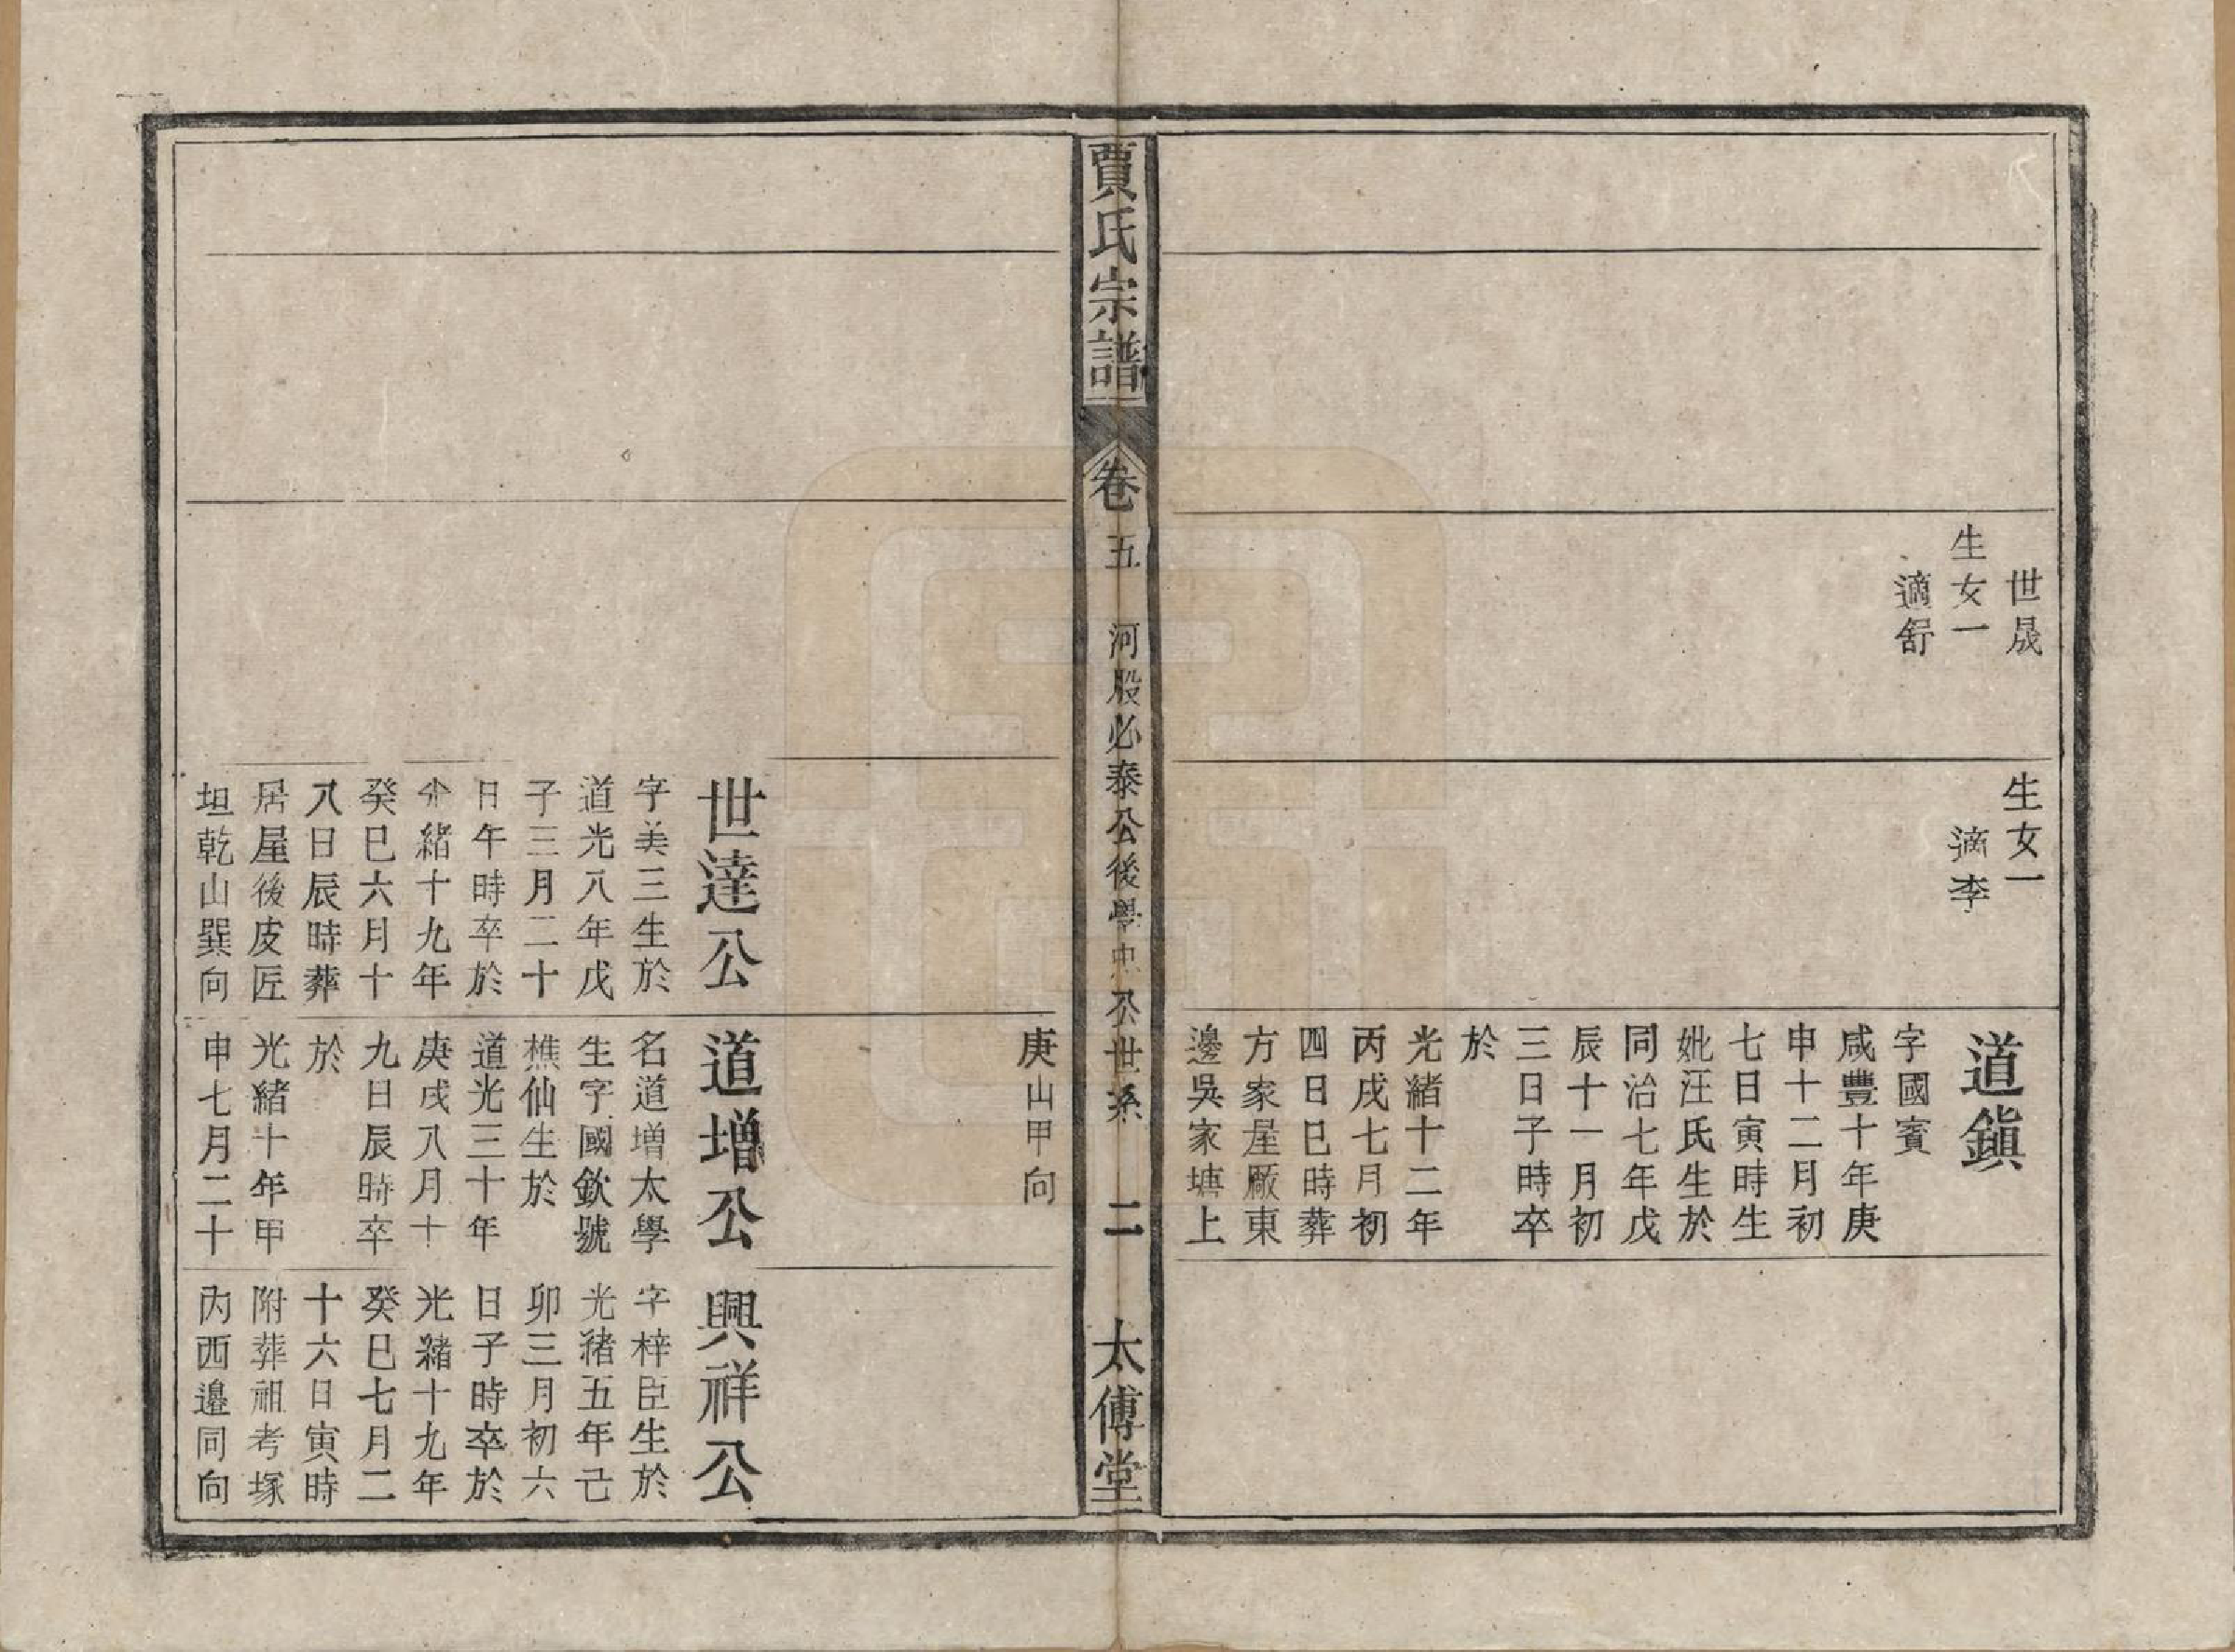 世晟
生女一
適舒
生女一
適李
道鎭
字國賓
咸豐十年庚
申十二月初
七日寅時生
妣汪氏生於
同治七年戊
辰十一月初
三日子時卒
於
光緒十二年
丙戌七月初
四日巳時葬
方家屋廠東
邊吳家塘上
賈氏宗譜
卷五
河股必泰公後學忠公世系
二
太傅堂
庚山甲向
世達公
字美三生於
道光八年戊
子三月二十
日午時卒於
光緒十九年
癸巳六月十
八日辰時葬
居屋後皮匠
坦乾山巽向
道增公
名道增太學
生字國欽號
樵仙生於
道光三十年
庚戌八月十
九日辰時卒
於
光緒十年甲
申七月二十
興祥公
字梓臣生於
光緒五年己
卯三月初六
日子時卒於
光緒十九年
癸巳七月二
十六日寅時
附葬祖考塚
內西邉同向